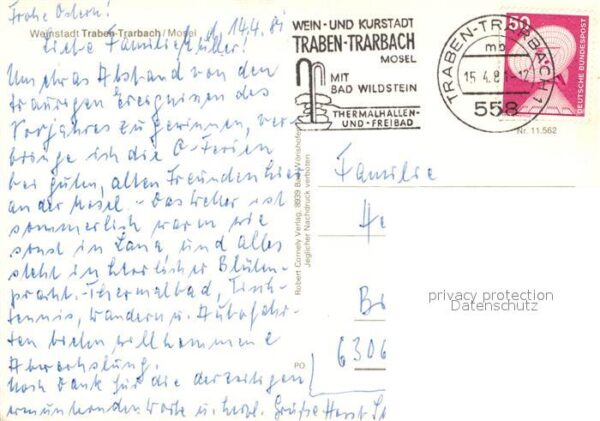 Frohe Ostern!
d. 14.4.81
Weinstadt Traben-Trarbach / Mosel
Liebe Familie Müller!
Um etwas Abstand von den
traurigen Ereignissen des
Vorjahres zu gewinnen, ver-
bringe ich die O-Ferien
bei guten, alten Freunden hier
an der Mosel. Das Wetter ist
sommerlich warm wie
sonst in Lana und alles
steht in herrlicher Blüten-
pracht. Thermalbad, Tisch-
tennis, Wandern u. Autofahr-
ten bieten willkommene
Abwechslung.
Noch Dank für die derzeitigen
ermunternden Worte u. herzl. Grüße Horst
WEIN- UND KURSTADT
TRABEN-TRARBACH
MOSEL
MIT
BAD WILDSTEIN
THERMALHALLEN-
UND-FREIBAD
TRABEN-TRARBACH 1
mb
15.4.81-17
558
50
DEUTSCHE BUNDESPOST
Nr. 11.562
Robert Cornely Verlag, 8939 Bad Wörishofen
Jeglicher Nachdruck verboten
PO
Familie
He
B
6306
privacy protection
Datenschutz